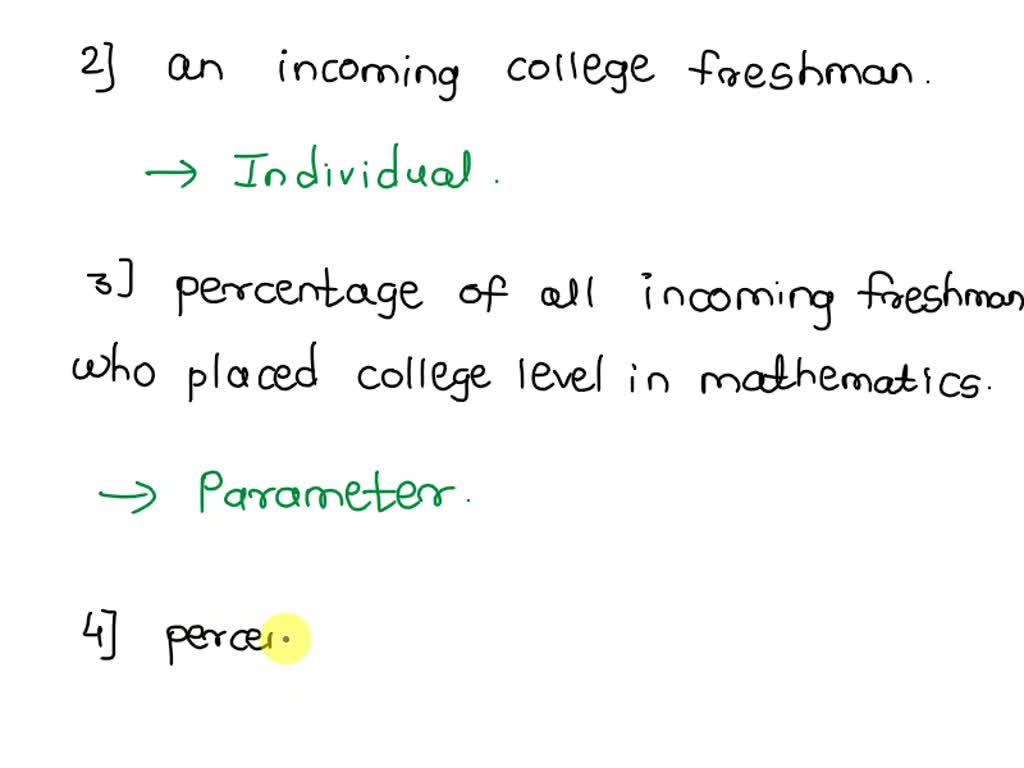 2] an incoming college freshman.
→ Individual.
3] percentage of all incoming freshman
who placed college level in mathematics.
→ Parameter.
4] percen